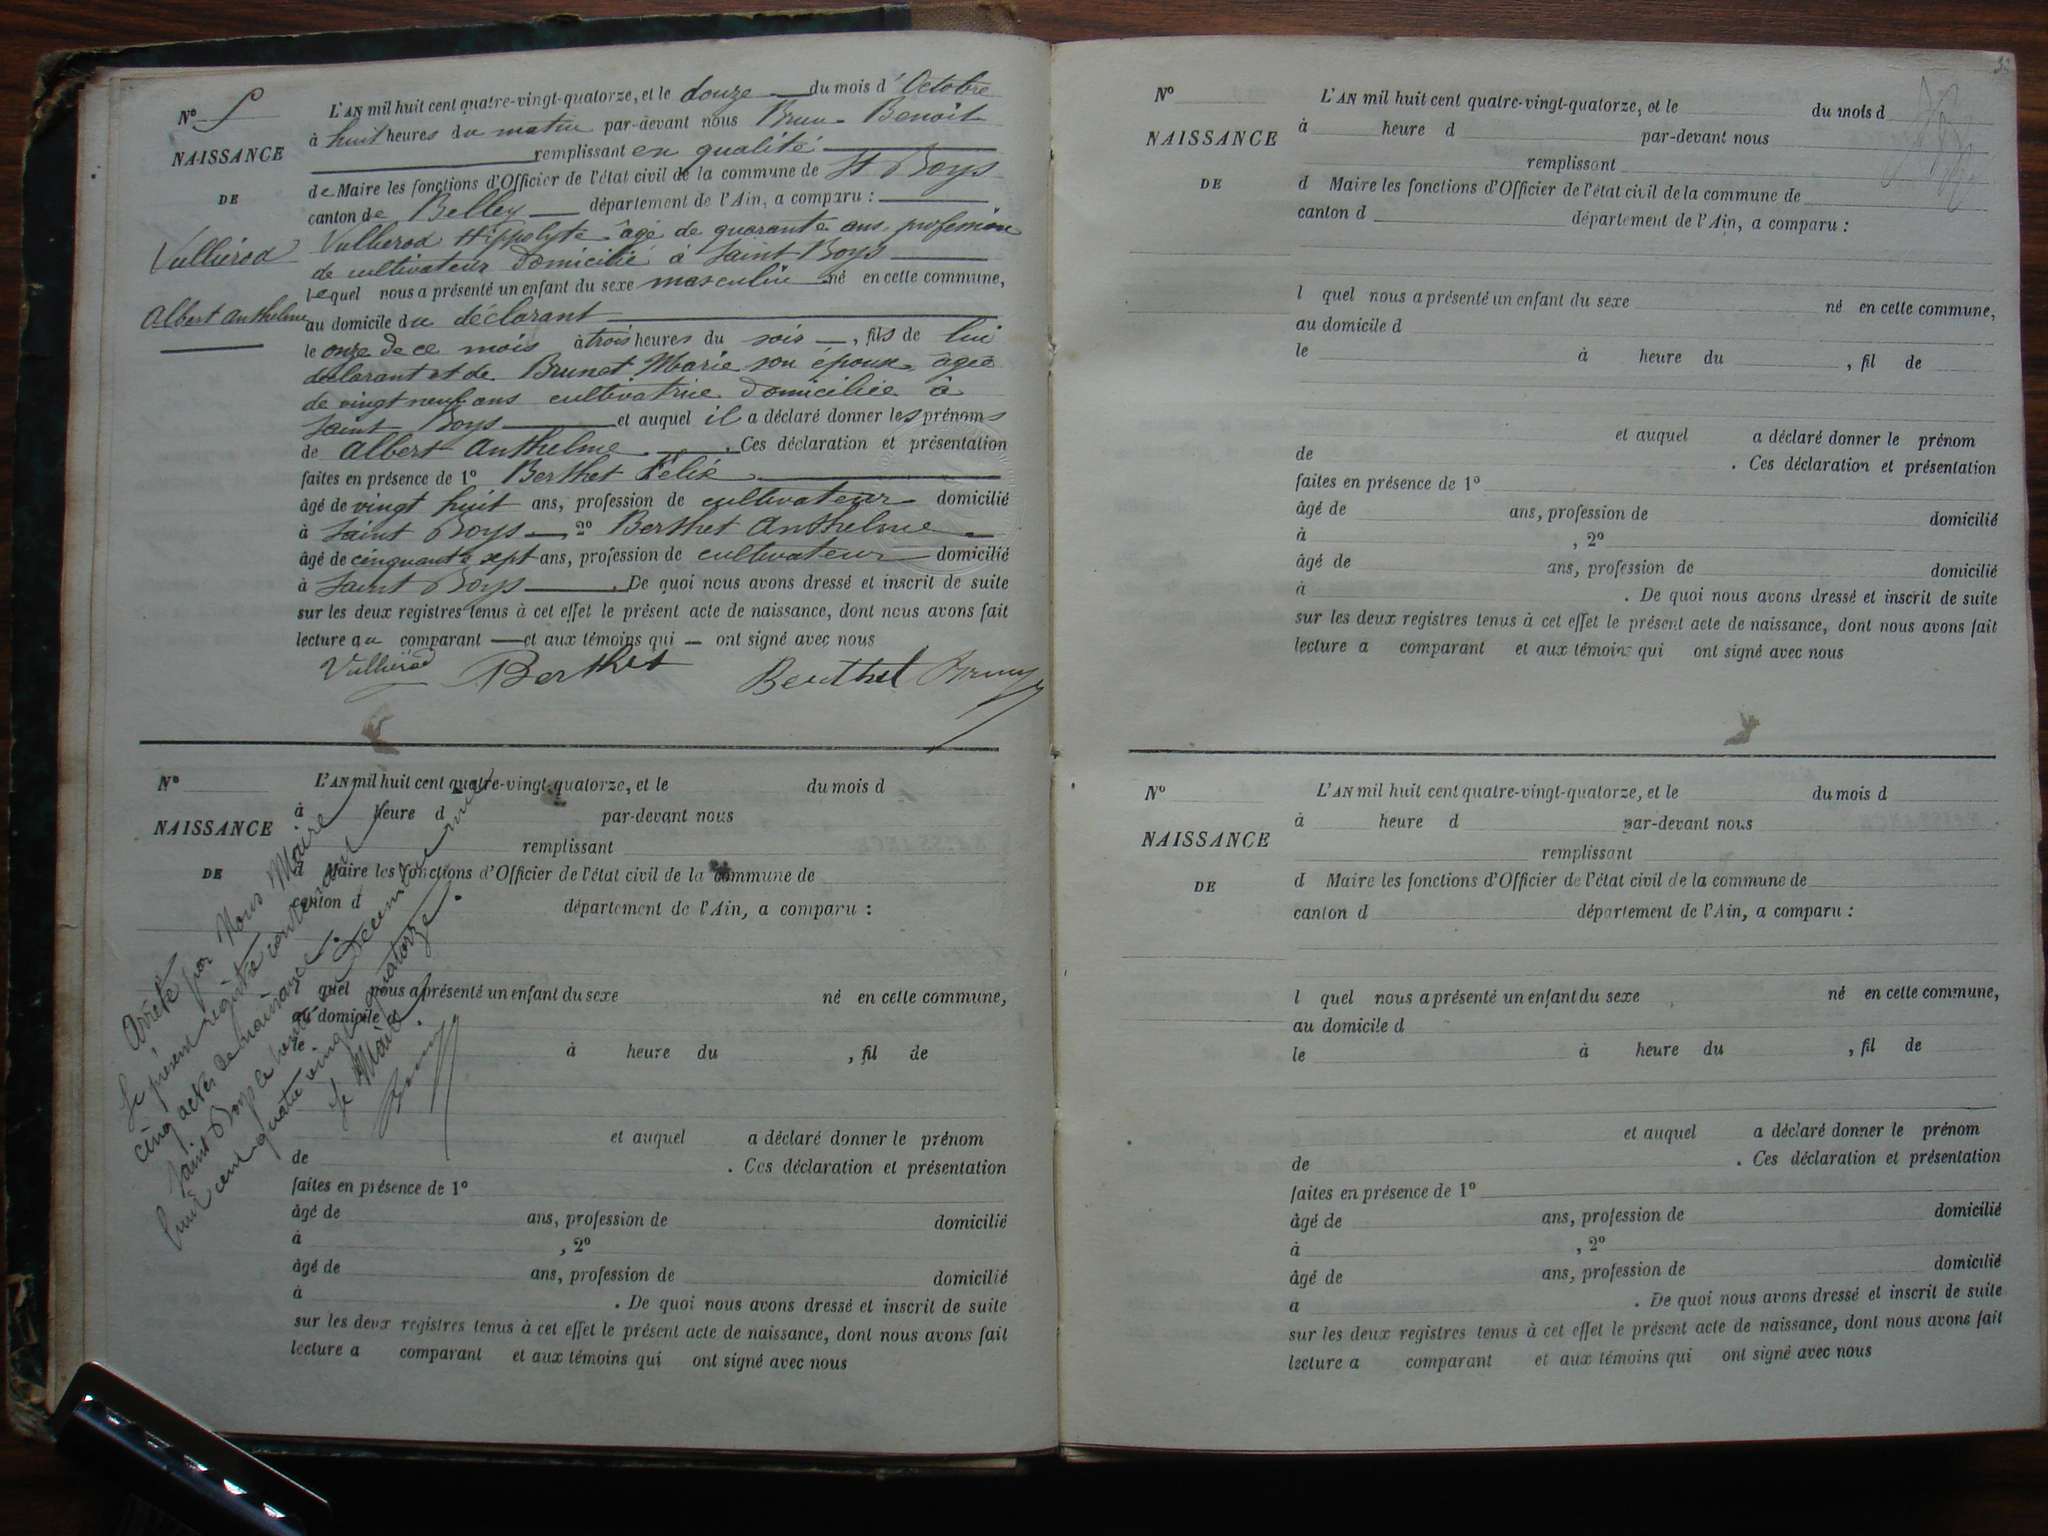 N° 5
NAISSANCE
DE
Vulliérod
Albert Anthelme
L'AN mil huit cent quatre-vingt-quatorze, et le douze du mois d'Octobre
à huit heures du matin par-devant nous Brun Benoit
remplissant en qualité
de Maire les fonctions d'Officier de l'état civil de la commune de St Boys
canton de Belley département de l'Ain, a comparu :
Vulliérod Hippolyte âgé de quarante ans profession
de cultivateur domicilié à Saint Boys
lequel nous a présenté un enfant du sexe masculin né en cette commune,
au domicile du déclarant
le onze de ce mois à trois heures du soir, fils de lui
déclarant et de Brunet Marie son épouse âgée
de vingt neuf ans cultivatrice domiciliée à
Saint Boys et auquel il a déclaré donner les prénoms
de Albert Anthelme. Ces déclaration et présentation
faites en présence de 1° Berthet Félix
âgé de vingt huit ans, profession de cultivateur domicilié
à Saint Boys 2° Berthet Anthelme
âgé de cinquante sept ans, profession de cultivateur domicilié
à Saint Boys. De quoi nous avons dressé et inscrit de suite
sur les deux registres tenus à cet effet le présent acte de naissance, dont nous avons fait
lecture au comparant et aux témoins qui ont signé avec nous
Vulliérod Berthet Berthet Brun
N°
NAISSANCE
DE
L'AN mil huit cent quatre-vingt-quatorze, et le du mois d
à heure d par-devant nous
remplissant
d Maire les fonctions d'Officier de l'état civil de la commune de
canton d département de l'Ain, a comparu :
l quel nous a présenté un enfant du sexe né en cette commune,
au domicile d
le à heure du , fil de
et auquel a déclaré donner le prénom
de . Ces déclaration et présentation
faites en présence de 1°
âgé de ans, profession de domicilié
à , 2°
âgé de ans, profession de domicilié
à . De quoi nous avons dressé et inscrit de suite
sur les deux registres tenus à cet effet le présent acte de naissance, dont nous avons fait
lecture a comparant et aux témoins qui ont signé avec nous
Arrêté par Nous Maire
le présent registre contenant
cinq actes de naissance.
Saint Boys le trente et un Décembre mil
huit cent quatre vingt quatorze.
Le Maire
Brun
N°
NAISSANCE
DE
L'AN mil huit cent quatre-vingt-quatorze, et le du mois d
à heure d par-devant nous
remplissant
d Maire les fonctions d'Officier de l'état civil de la commune de
canton d département de l'Ain, a comparu :
l quel nous a présenté un enfant du sexe né en cette commune,
au domicile d
le à heure du , fil de
et auquel a déclaré donner le prénom
de . Ces déclaration et présentation
faites en présence de 1°
âgé de ans, profession de domicilié
à , 2°
âgé de ans, profession de domicilié
à . De quoi nous avons dressé et inscrit de suite
sur les deux registres tenus à cet effet le présent acte de naissance, dont nous avons fait
lecture a comparant et aux témoins qui ont signé avec nous
N°
NAISSANCE
DE
L'AN mil huit cent quatre-vingt-quatorze, et le du mois d
à heure d par-devant nous
remplissant
d Maire les fonctions d'Officier de l'état civil de la commune de
canton d département de l'Ain, a comparu :
l quel nous a présenté un enfant du sexe né en cette commune,
au domicile d
le à heure du , fil de
et auquel a déclaré donner le prénom
de . Ces déclaration et présentation
faites en présence de 1°
âgé de ans, profession de domicilié
à , 2°
âgé de ans, profession de domicilié
a . De quoi nous avons dressé et inscrit de suite
sur les deux registres tenus à cet effet le présent acte de naissance, dont nous avons fait
lecture a comparant et aux témoins qui ont signé avec nous